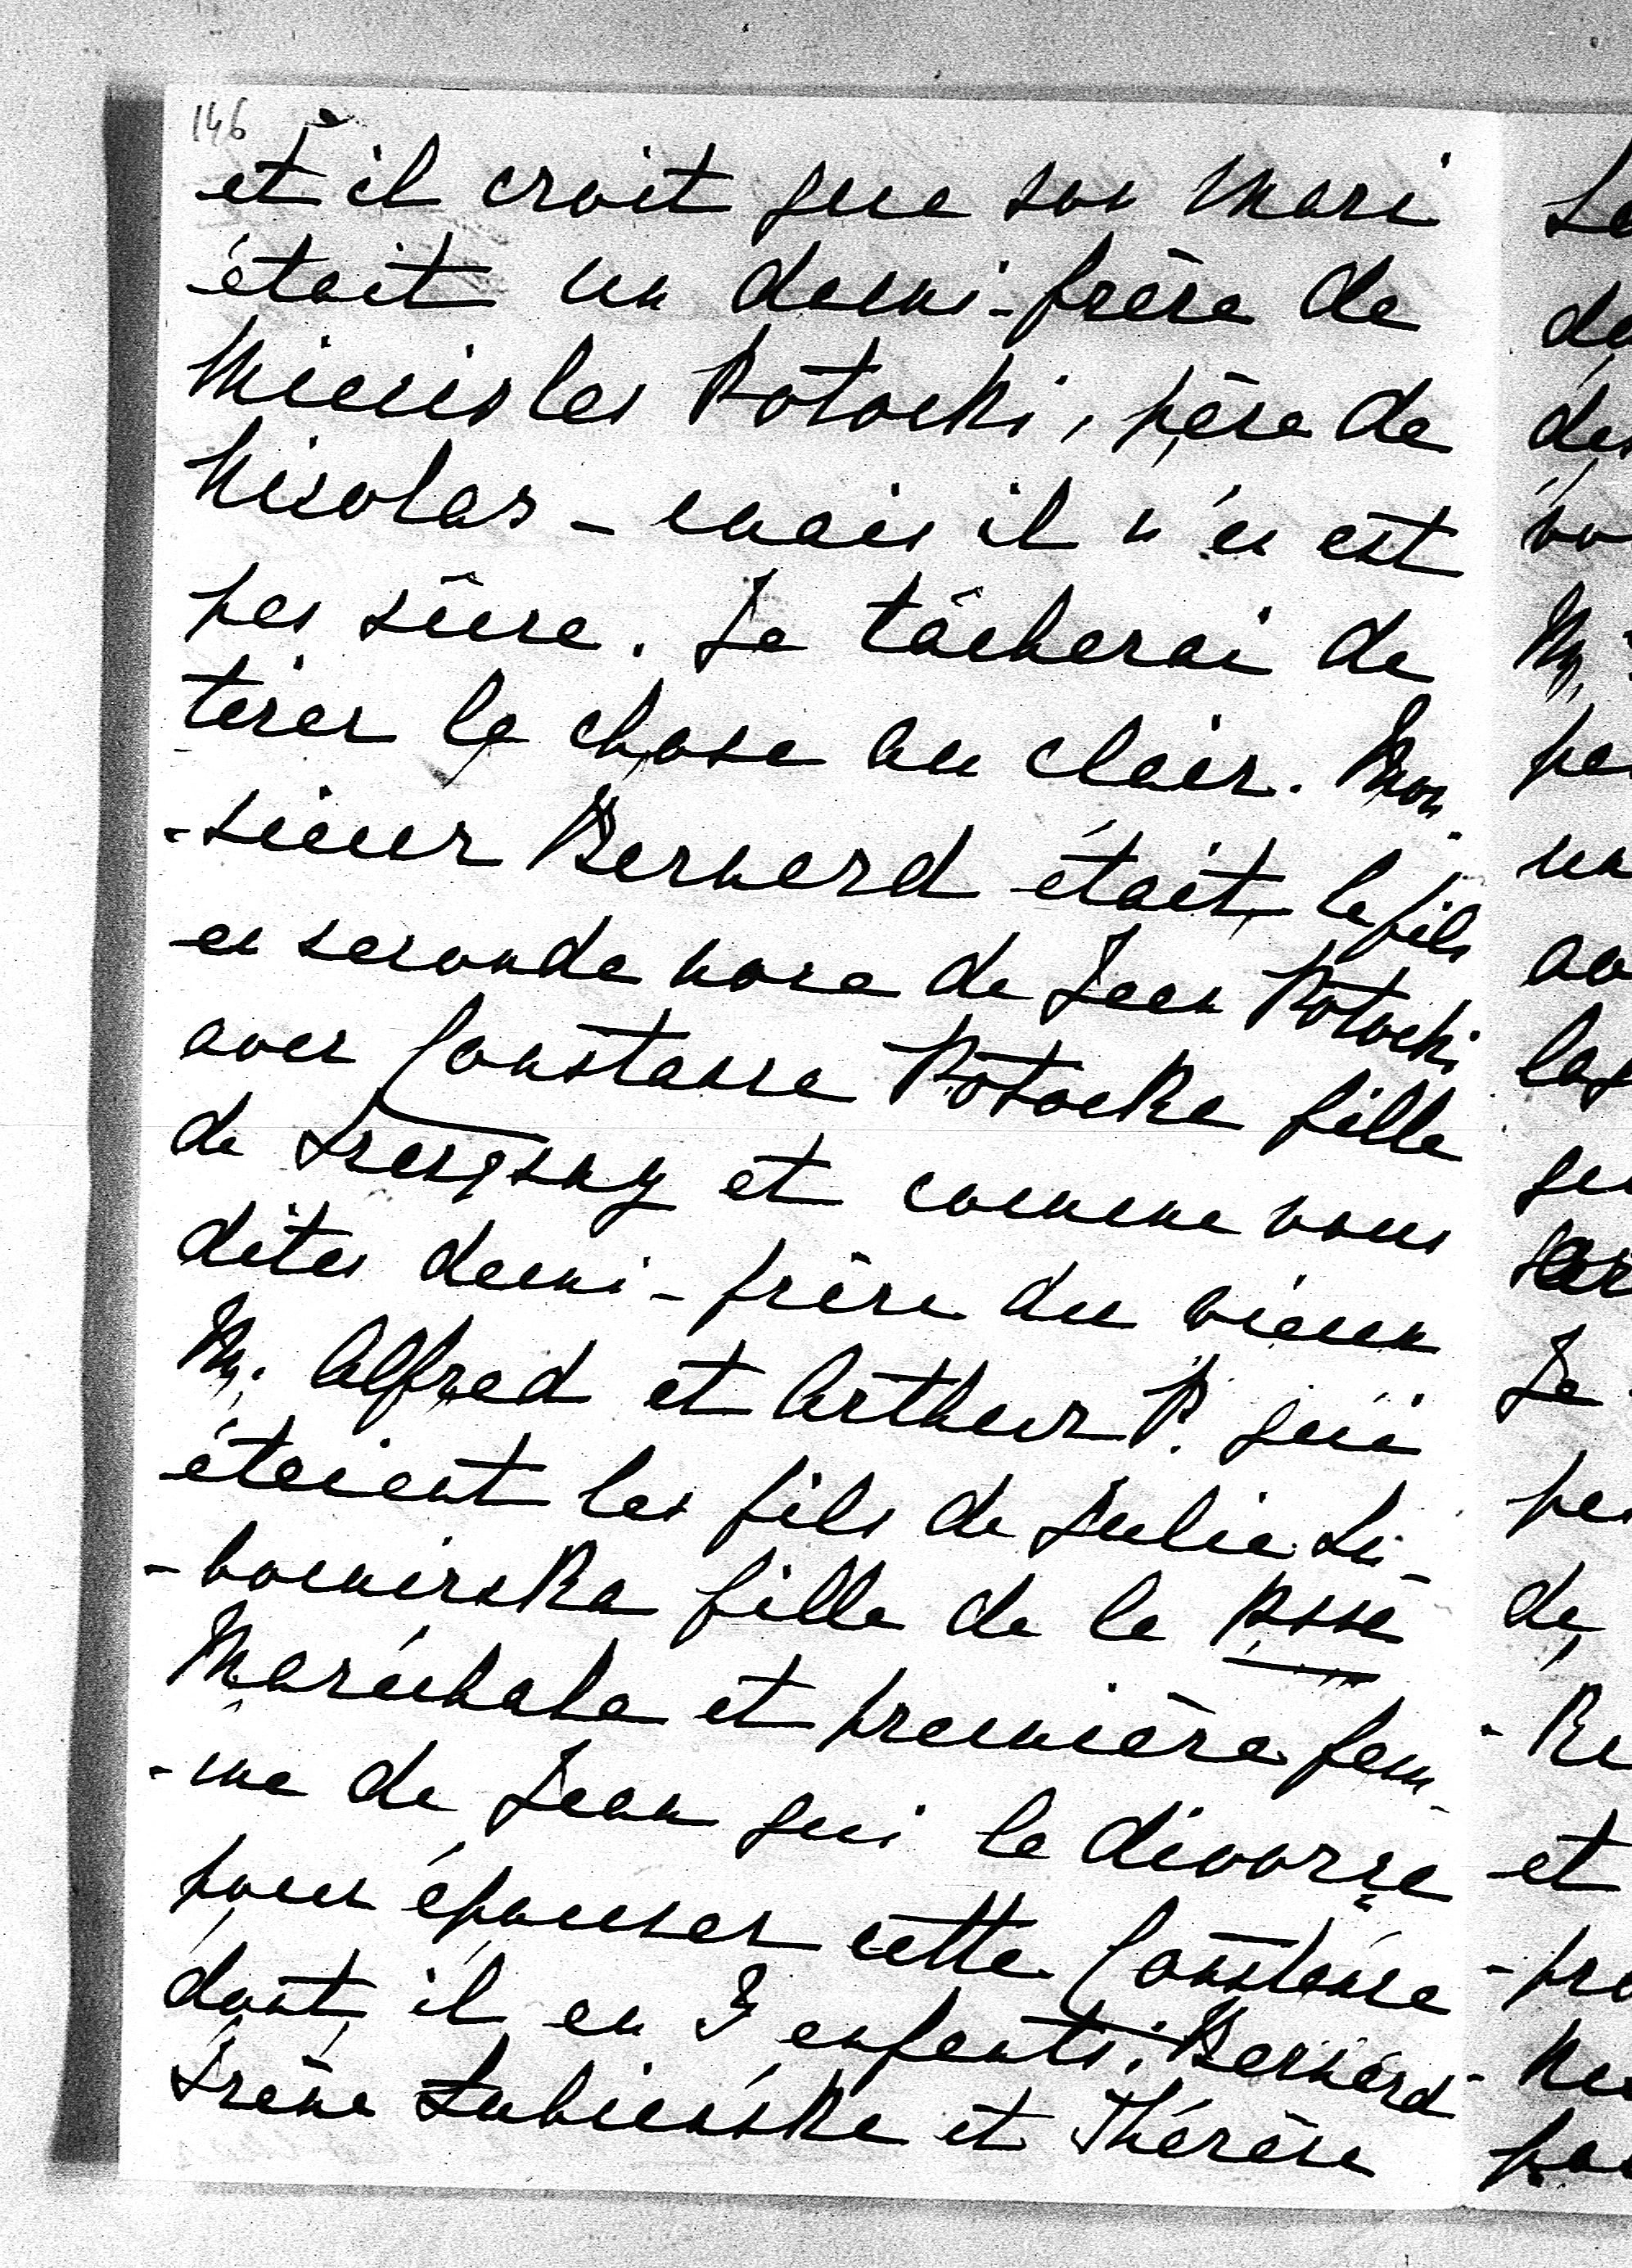 146
et il croit que son mari
était un demi-frère de
Miecislas Potocki, père de
Nicolas - mais il n'en est
pas sûre. Je tâcherai de
tirer la chose au clair. Mon-
-sieur Bernard était le fils
en seconde noce de Jean Potocki
avec Constance Potocka fille
de Szczęsny et comme vous
dites demi-frère du vieux
M. Alfred et Arthur P. qui
étaient les fils de Julie Lu-
-bomirska fille de la Pssē
Maréchale et première fem-
-me de Jean qui la divorça
pour épouser cette Constance
dont il eu 3 enfants: Bernard
Irène Łubieńska et Thérèse